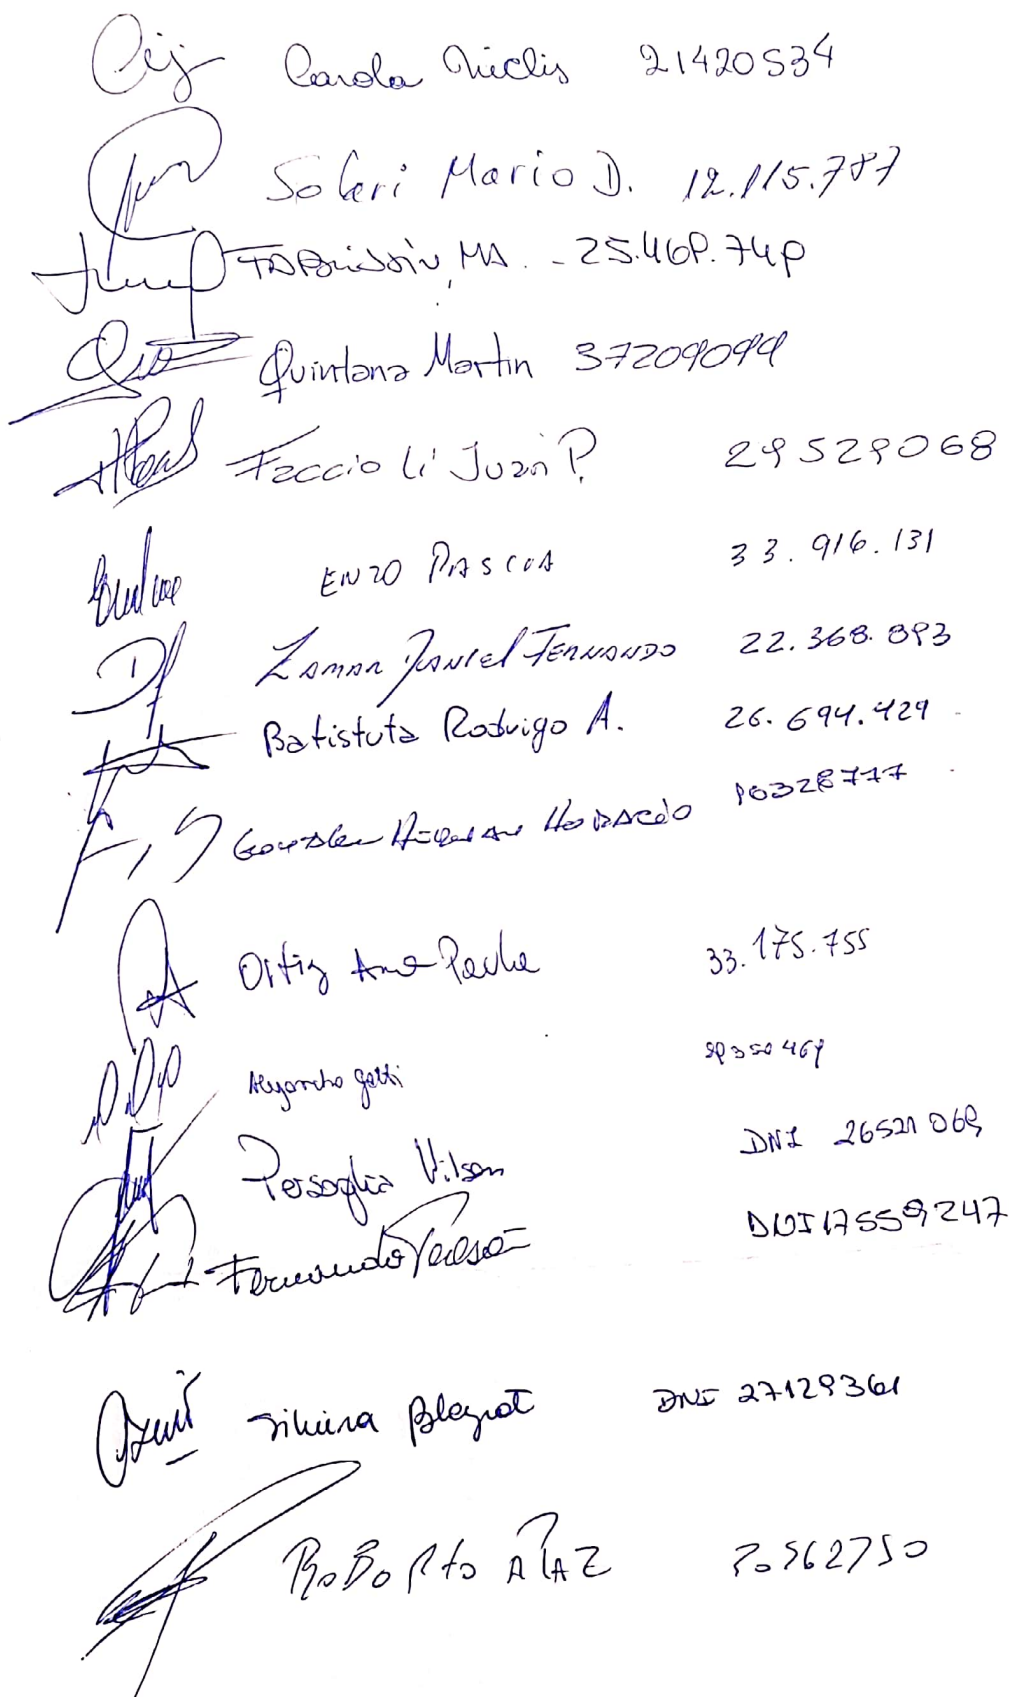 Carola Niclis 21420534
Soleri Mario D. 12.115.787
MA. - 25.468.748
Quintana Martin 37209099
Faccioli Juan P. 29529068
ENZO PASCUA 33.916.131
ZAMAR DANIEL FERNANDO 22.368.893
Batistuta Rodrigo A. 26.694.429
HORACIO
Ortiz Ana Paula 33.175.755
Alejandro Gatti
Persoglia Vilson DNI 26521069
Fernando DNI 17559247
Silvina DNI 27129361
ROBORTO